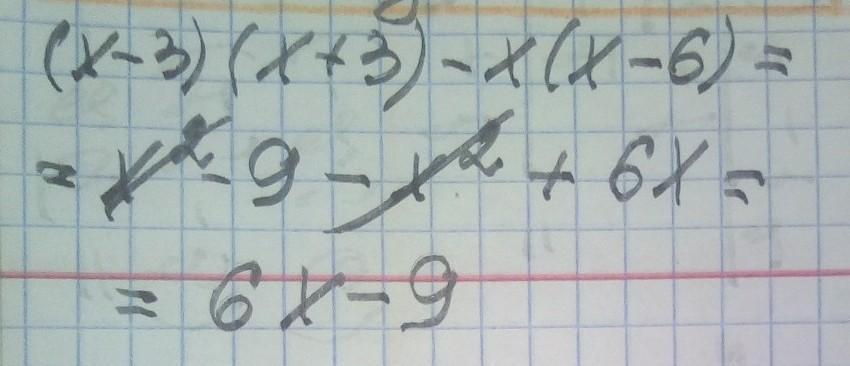 (x-3)(x+3)-x(x-6)=
=x²-9-x²+6x=
=6x-9